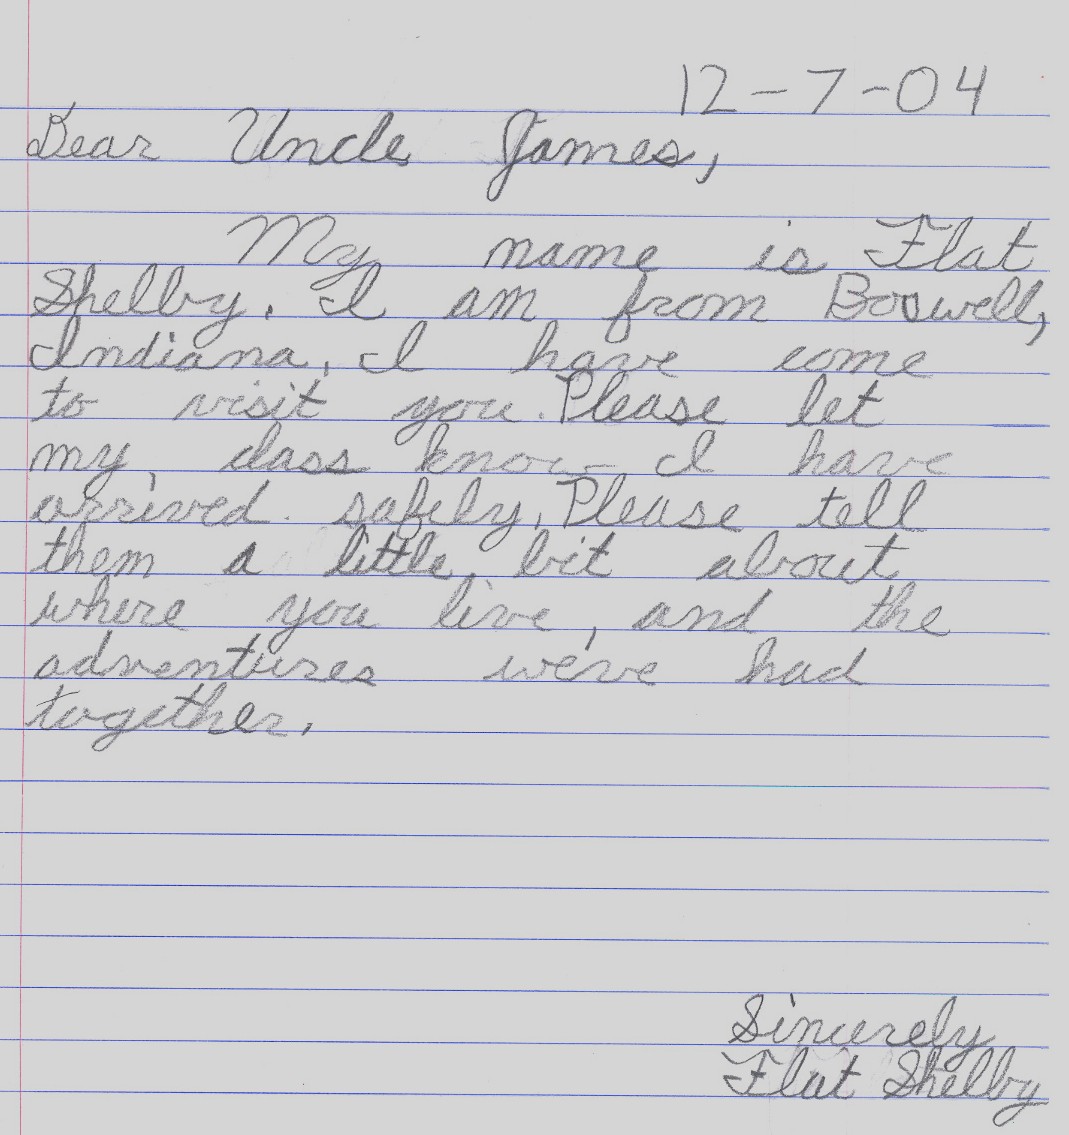 12-7-04
Dear Uncle James,
My name is Flat
Shelby. I am from Boswell,
Indiana. I have come
to visit you. Please let
my class know I have
arrived safely. Please tell
them a little bit about
where you live, and the
adventures we've had
together.
Sincerely
Flat Shelby